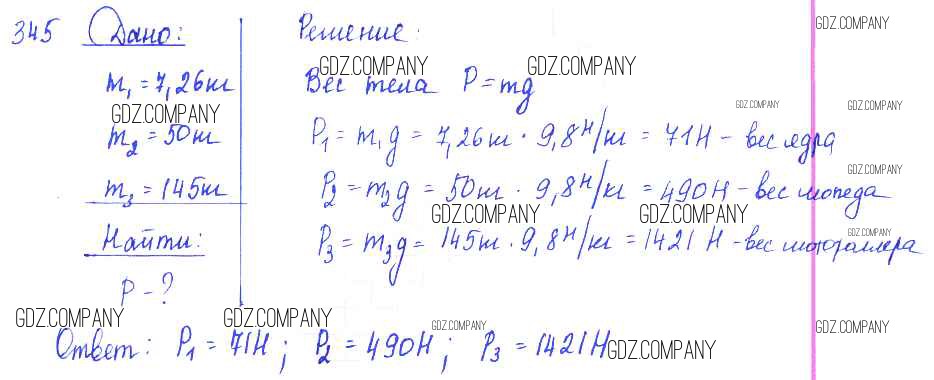 345 Дано: Решение:
GDZ.COMPANY
m₁ = 7,26 кг Вес тела P = mg
GDZ.COMPANY GDZ.COMPANY
GDZ.COMPANY GDZ.COMPANY GDZ.COMPANY
m₂ = 50 кг P₁ = m₁g = 7,26 кг · 9,8 Н/кг = 71 Н – вес ядра
GDZ.COMPANY
m₃ = 145 кг P₂ = m₂g = 50 кг · 9,8 Н/кг = 490 Н – вес мопеда
GDZ.COMPANY GDZ.COMPANY
GDZ.COMPANY
Найти: P₃ = m₃g = 145 кг · 9,8 Н/кг = 1421 Н – вес мотороллера
P – ?
GDZ.COMPANY GDZ.COMPANY GDZ.COMPANY GDZ.COMPANY
Ответ: P₁ = 71 Н; P₂ = 490 Н; P₃ = 1421 Н
GDZ.COMPANY